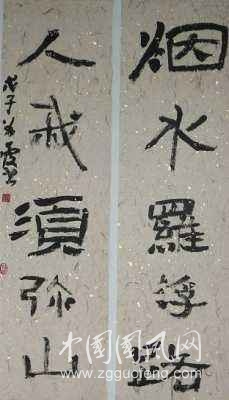 烟水羅浮路
人我須弥山
戊子
中国国风网
www.zgguofeng.com